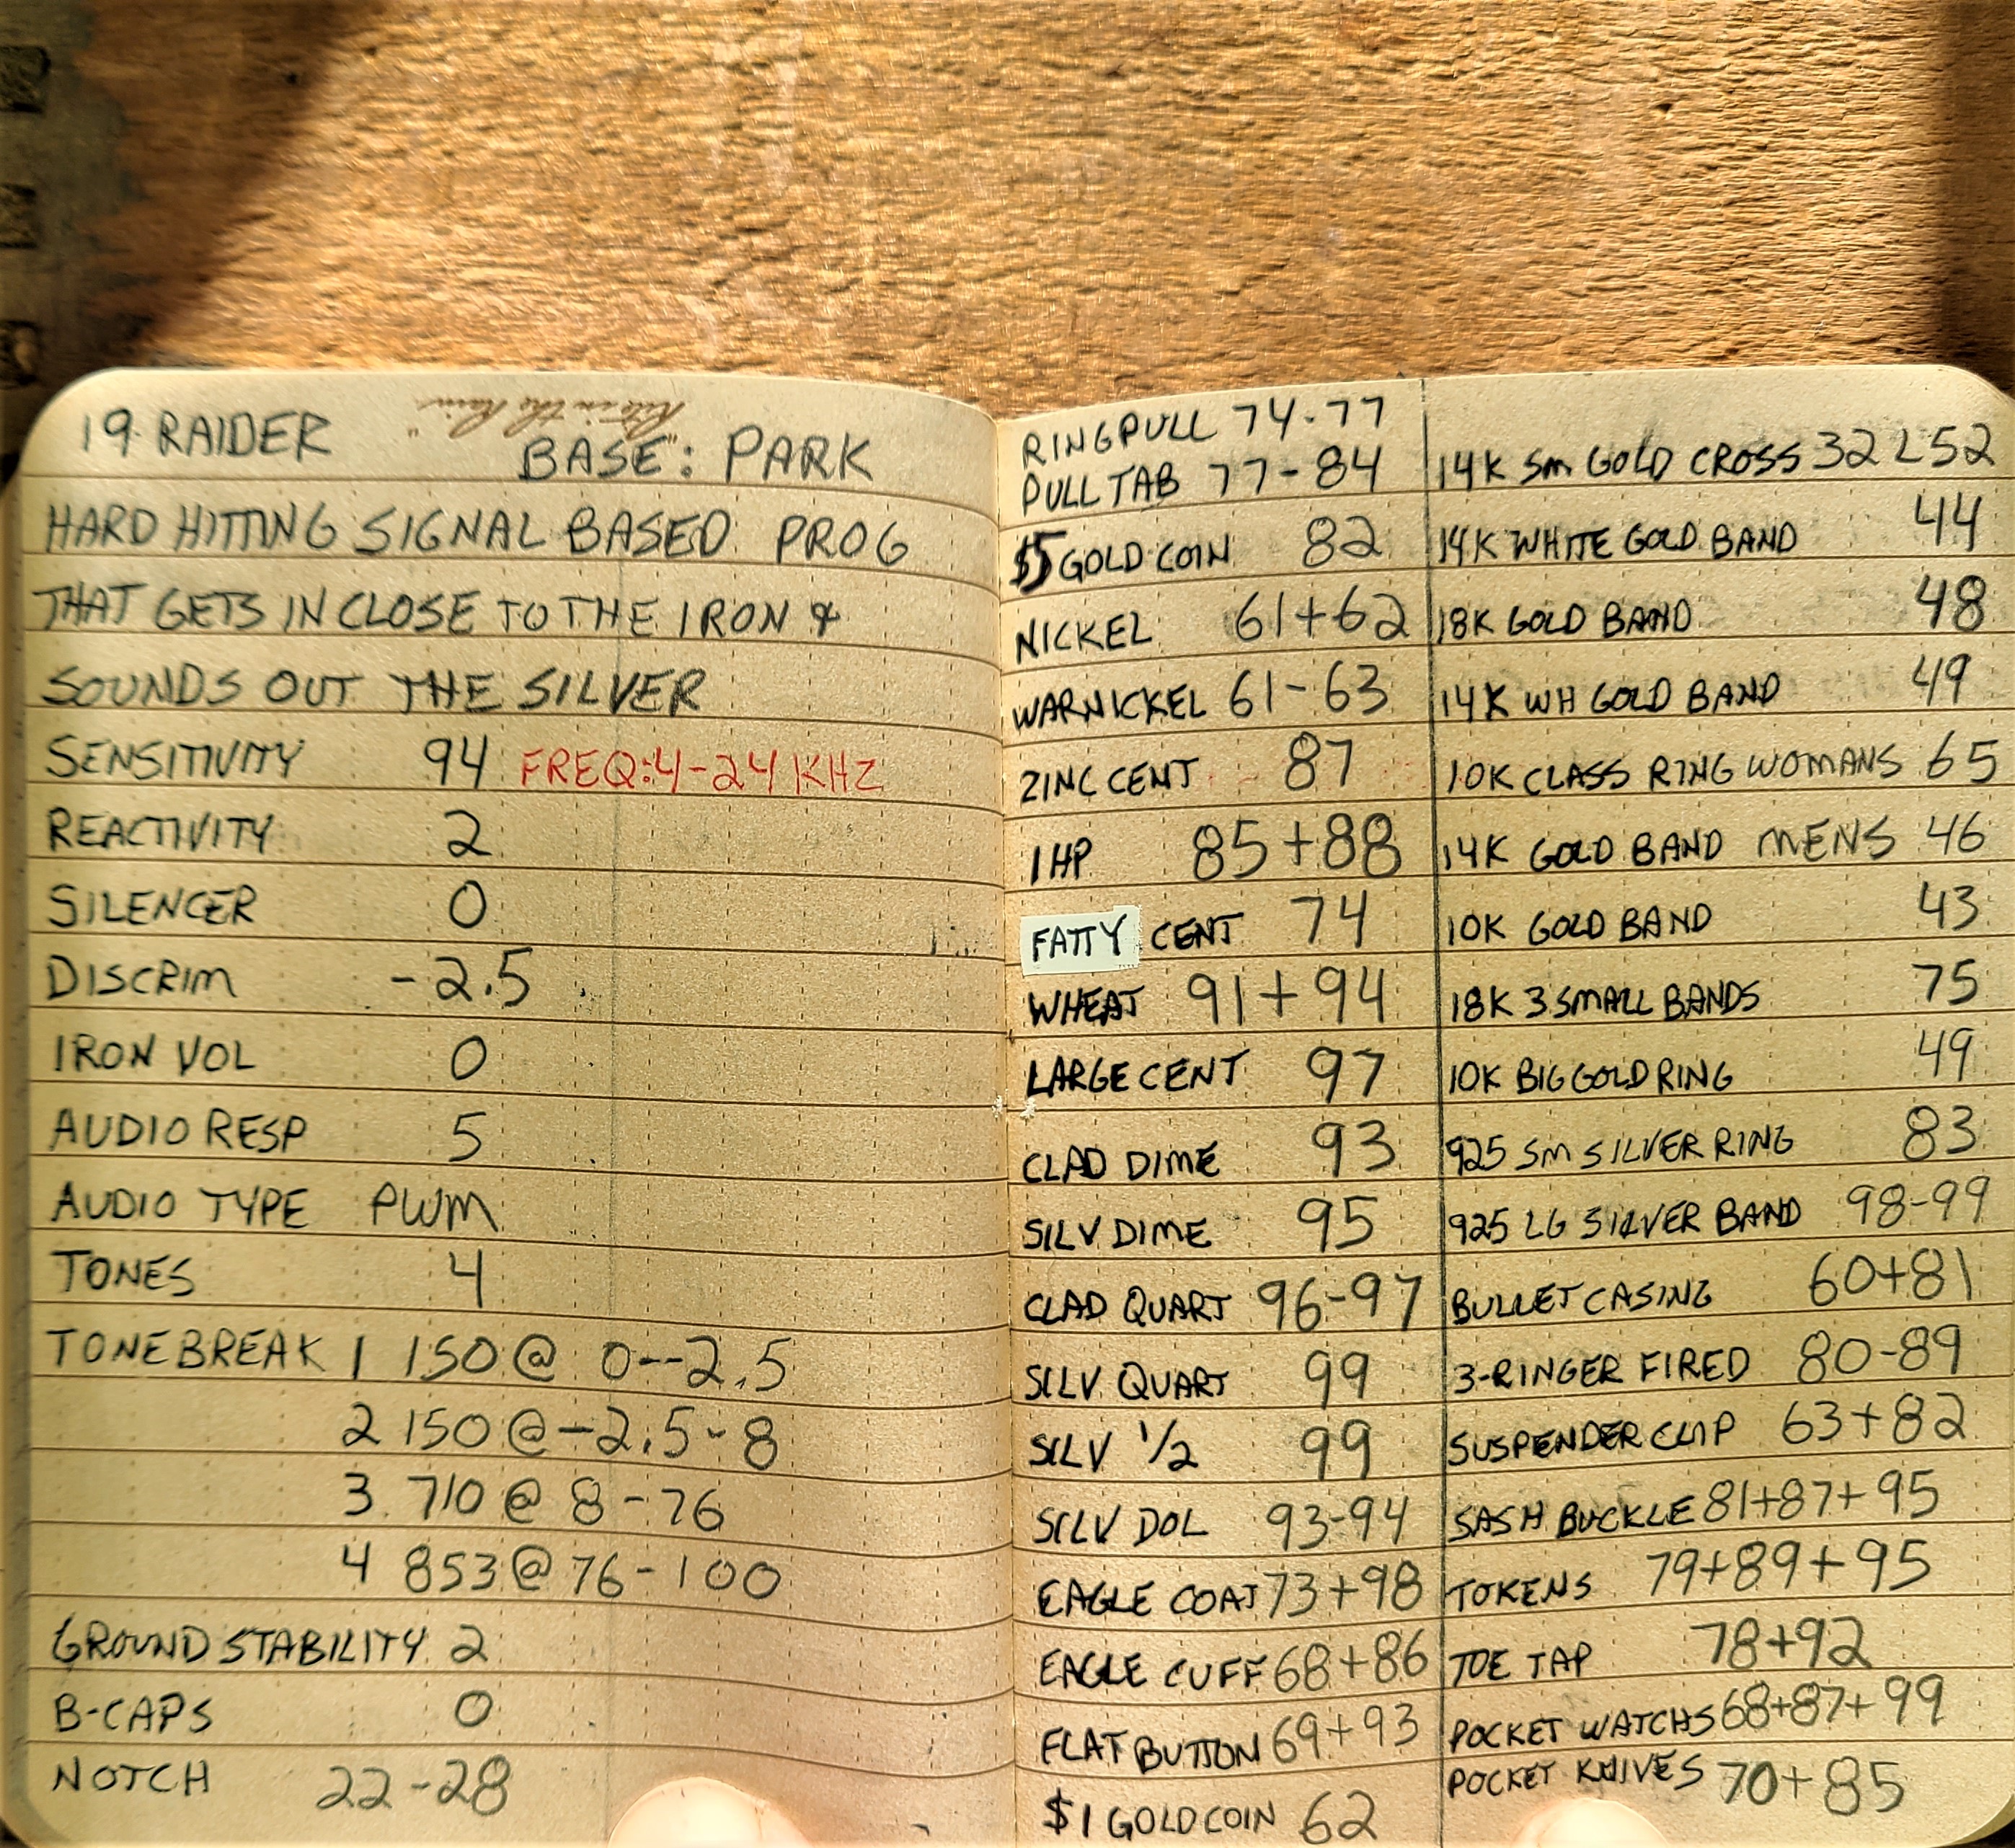 "Rite in the Rain"
19 RAIDER BASE: PARK
HARD HITTING SIGNAL BASED PROG
THAT GETS IN CLOSE TO THE IRON &
SOUNDS OUT THE SILVER
SENSITIVITY 94 FREQ:4-24 KHZ
REACTIVITY 2
SILENCER 0
DISCRIM -2.5
IRON VOL 0
AUDIO RESP 5
AUDIO TYPE PWM
TONES 4
TONE BREAK 1 150@ 0--2.5
2 150@ -2.5-8
3 710@ 8-76
4 853@ 76-100
GROUND STABILITY 2
B-CAPS 0
NOTCH 22-28
RING PULL 74-77
PULL TAB 77-84
$5 GOLD COIN 82
NICKEL 61+62
WARNICKEL 61-63
ZINC CENT 87
IHP 85+88
FATTY CENT 74
WHEAT 91+94
LARGE CENT 97
CLAD DIME 93
SILV DIME 95
CLAD QUART 96-97
SILV QUART 99
SILV 1/2 99
SILV DOL 93-94
EAGLE COAT 73+98
EAGLE CUFF 68+86
FLAT BUTTON 69+93
$1 GOLD COIN 62
14K SM GOLD CROSS 32 L52
14K WHITE GOLD BAND 44
18K GOLD BAND 48
14K WH GOLD BAND 49
10K CLASS RING WOMANS 65
14K GOLD BAND MENS 46
10K GOLD BAND 43
18K 3 SMALL BANDS 75
10K BIG GOLD RING 49
925 SM SILVER RING 83
925 LG SILVER BAND 98-99
BULLET CASING 60+81
3-RINGER FIRED 80-89
SUSPENDER CLIP 63+82
SASH BUCKLE 81+87+95
TOKENS 79+89+95
TOE TAP 78+92
POCKET WATCHS 68+87+99
POCKET KNIVES 70+85